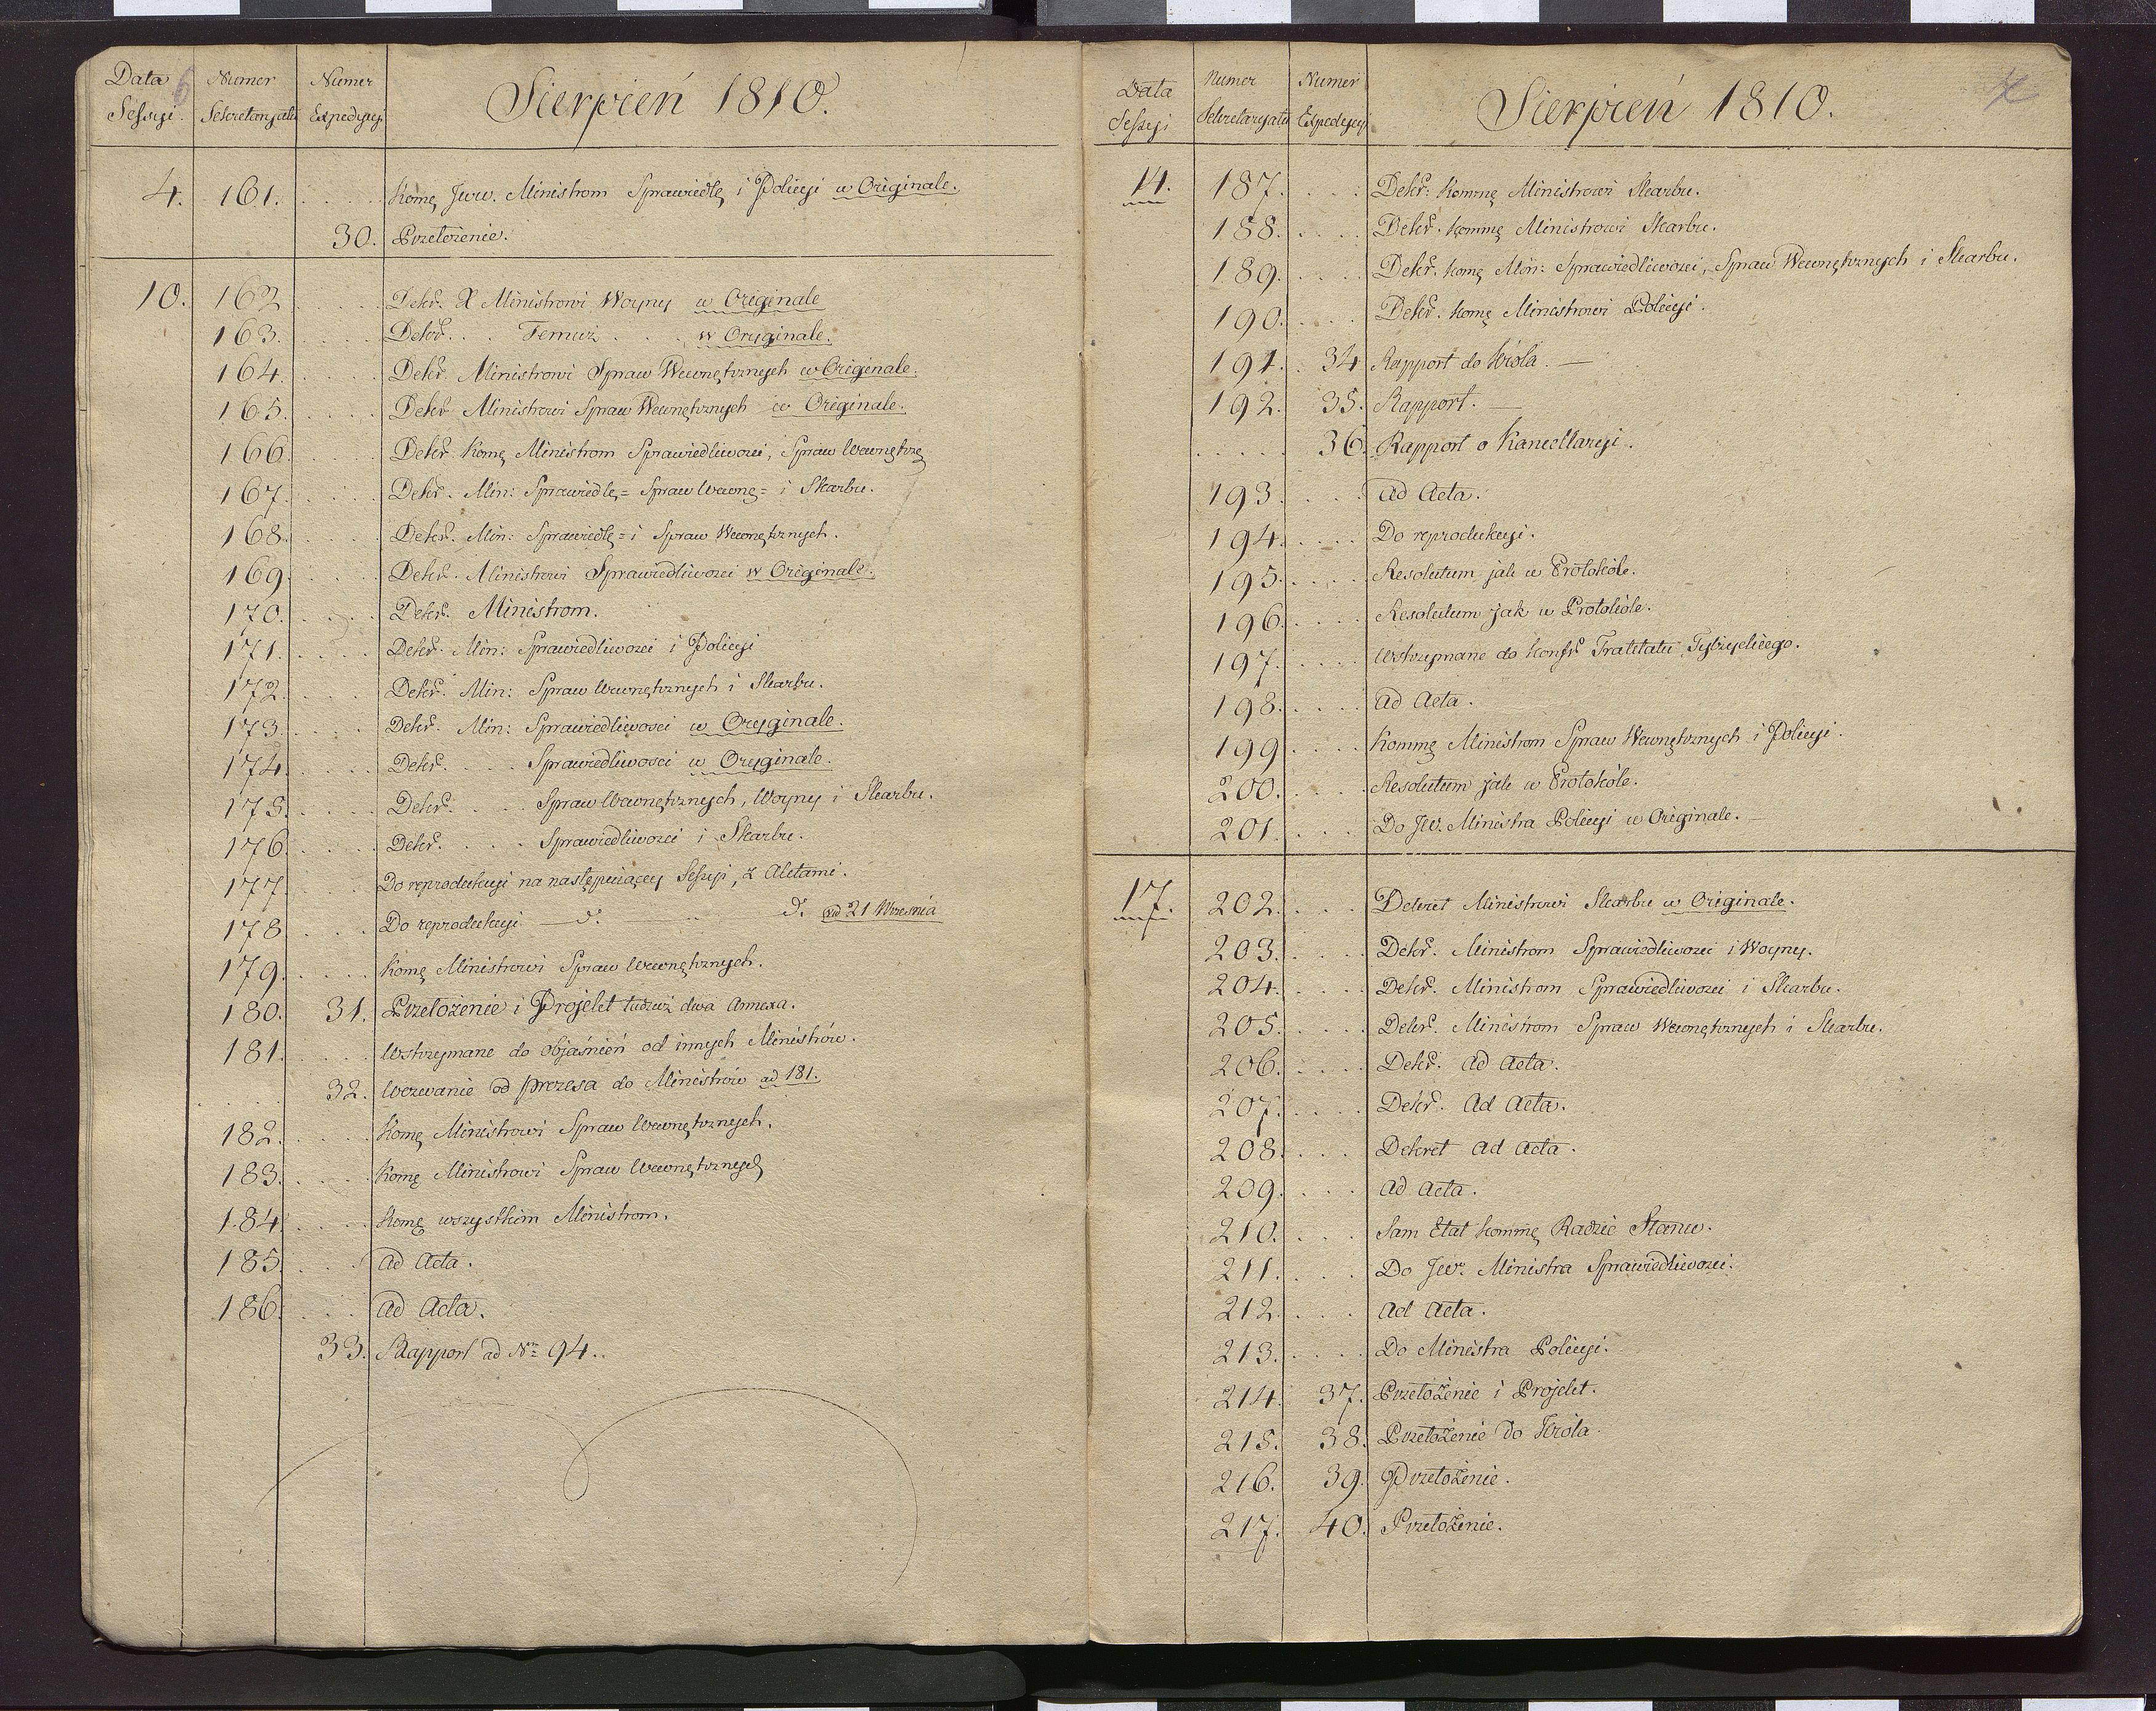 Data Sessyi. Numer Sekretaryatu Numer Expedycyi Sierpień 1810.
6
4. 161. Komę Jww. Ministrom Sprawiedlę i Policyi w Originale.
30. Przełożenie.
10. 162 Dekr. X Ministrowi Woyny w Originale
163. Dekr. Temuż w Oryginale.
164. Dekr. Ministrowi Spraw Wewnętrznych w Originale.
165. Dekr Ministrowi Spraw Wewnętrznych w Originale.
166. Dekr. Komę Ministrom Sprawiedliwości, Spraw Wewnętrzę
167. Dekr. Min: Sprawiedlę= Spraw Wewnę= i Skarbu.
168. Dekr. Min: Sprawiedlę= i Spraw Wewnętrznych.
169. Dekr. Ministrowi Sprawiedliwości w Originale.
170. Dekr. Ministrom.
171. Dekr. Min: Sprawiedliwości i Policyi
172. Dekr. Min: Spraw Wewnętrznych i Skarbu.
173. Dekr. Min: Sprawiedliwosci w Oryginale.
174. Dekr. Sprawiedliwosci w Oryginale.
175. Dekr. Spraw Wewnętrznych, Woyny i Skarbu.
176. Dekr. Sprawiedliwości i Skarbu.
177. Do reprodukcyi na następuiącey Sessyi, z Aktami.
178. Do reprodukcyi — d°. d°. 21 Wrzesnia
179. Komę Ministrowi Spraw Wewnętrznych.
180. 31. Przełożenie i Projekt tudzież dwa Annexa.
181. Wstrzymane do objaśnień od innych Ministrów.
32. Wezwanie od prezesa do Ministrów ad 181.
182. Komę Ministrowi Spraw Wewnętrznych.
183. Komę Ministrowi Spraw Wewnętrznych
184. Komę wszystkim Ministrom.
185. ad Acta.
186. ad Acta.
33. Rapport ad Nm 94..
Data Sessyi Numer Sekretaryatu Numer Expedycyi Sierpień 1810.
7
14. 187. Dekr: Kommę Ministrowi Skarbu.
188. Dekr. Kommę Ministrowi Skarbu.
189. Dekr. Komę Min: Sprawiedliwości, Spraw Wewnętrznych i Skarbu.
190. Dekr. Komę Ministrowi Policyi.
191. 34 Rapport do Króla. —
192. 35. Rapport. —
36. Rapport o Kancellaryi.
193. ad Acta.
194. Do reprodukcyi.
195. Resolutum jak w Protokóle.
196. Resolutum jak w Protokóle.
197. Wstrzymane do Konfr Traktatu Tylżyckiego.
198. ad Acta.
199. Kommę Ministrom Spraw Wewnętrznych i Policyi.
200. Resolutum jak w Protokóle.
201. Do Jw. Ministra Policyi w Originale. —
17. 202. Dekret Ministrowi Skarbu w Originale.
203. Dekr. Ministrom Sprawiedliwości i Woyny.
204. Dekr. Ministrom Sprawiedliwości i Skarbu.
205. Dekr. Ministrom Spraw Wewnętrznych i Skarbu.
206. Dekr. ad Acta.
207. Dekr. Ad Acta.
208. Dekret ad acta.
209. ad acta.
210. Sam Etat kommę Radzie Stanu.
211. Do Jw. Ministra Sprawiedliwości.
212. Ad Acta.
213. Do Ministra Policyi.
214. 37. Przełożenie i Projekt.
215. 38. Przełożenie do Króla.
216. 39. Przełożenie.
217. 40. Przełożenie.